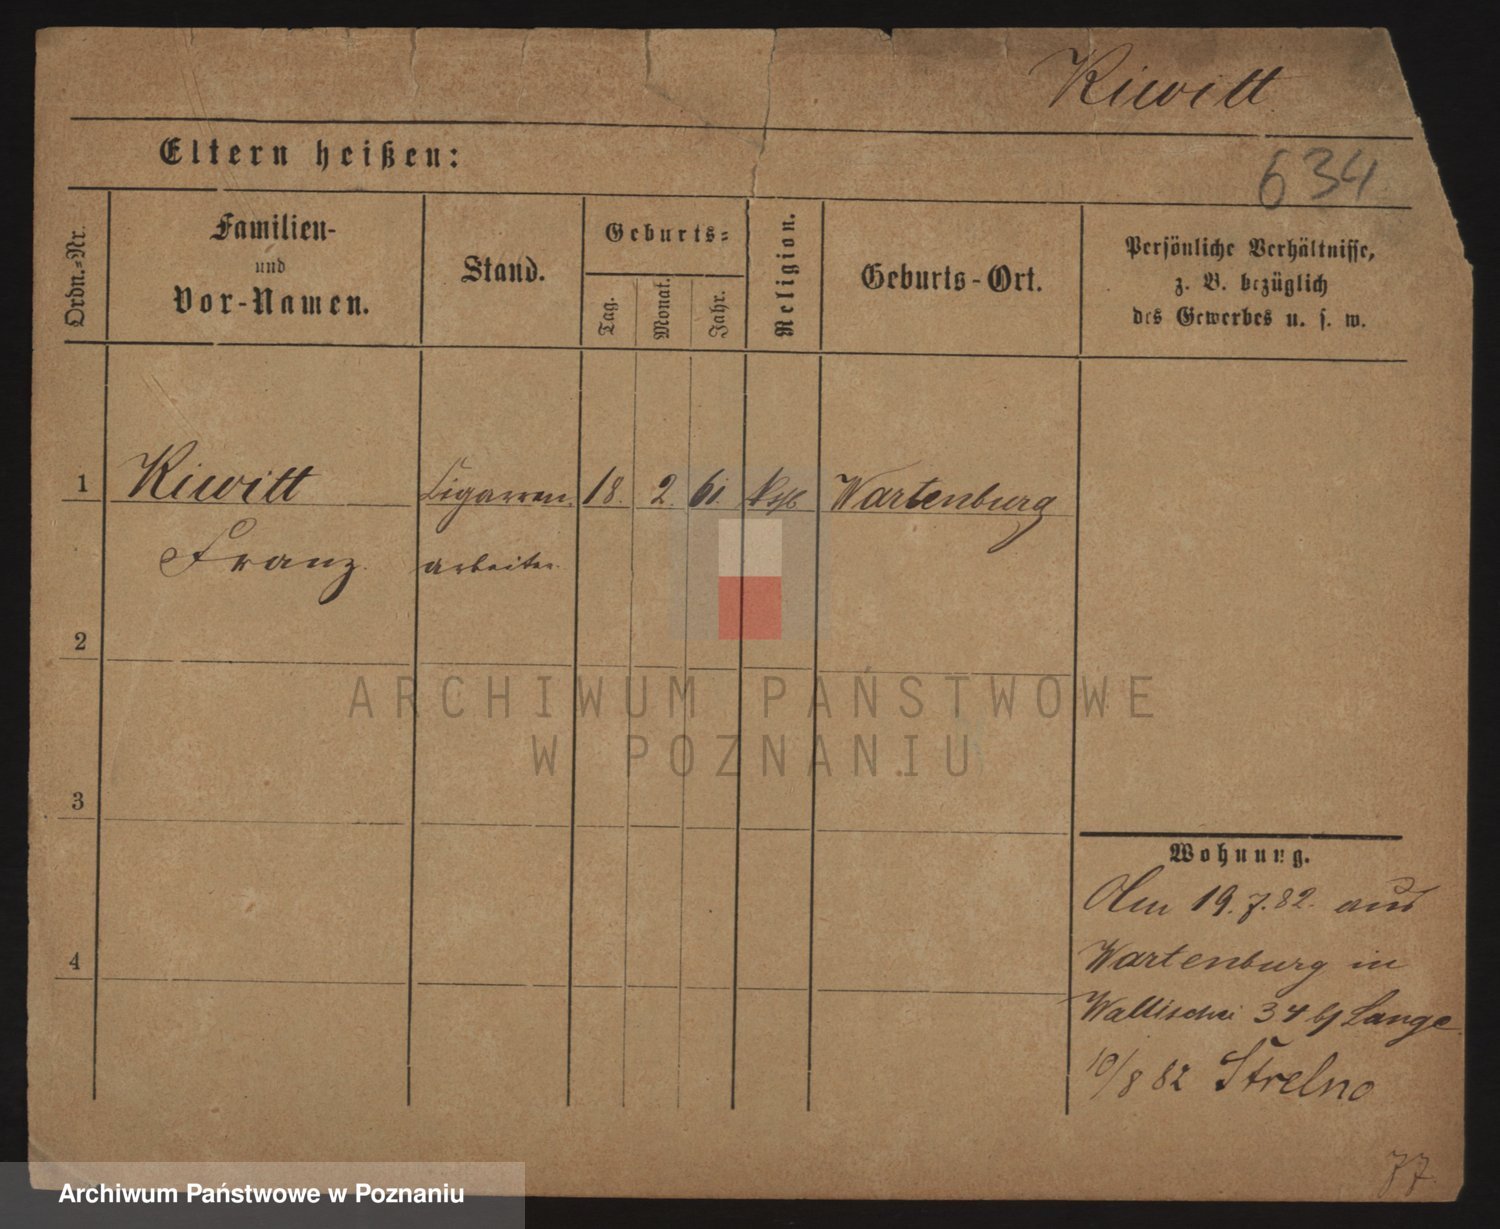 Kiwitt
Eltern heißen:
634
Ordn.-Nr.
Familien-
und
Vor-Namen.
Stand.
Geburts-
Tag.
Monat.
Jahr.
Religion.
Geburts-Ort.
Persönliche Verhältnisse,
z. B. bezüglich
des Gewerbes u. s. w.
1 Kiwitt Cigarren 18. 2. 61 Wartenburg
Franz. arbeiter
2
3
4
ARCHIWUM PAŃSTWOWE
W POZNANIU
Wohnung.
Am 19.7.82. aus
Wartenburg in
Wallischei 34 b/ Lange
10/8 82 Strelno
77
Archiwum Państwowe w Poznaniu